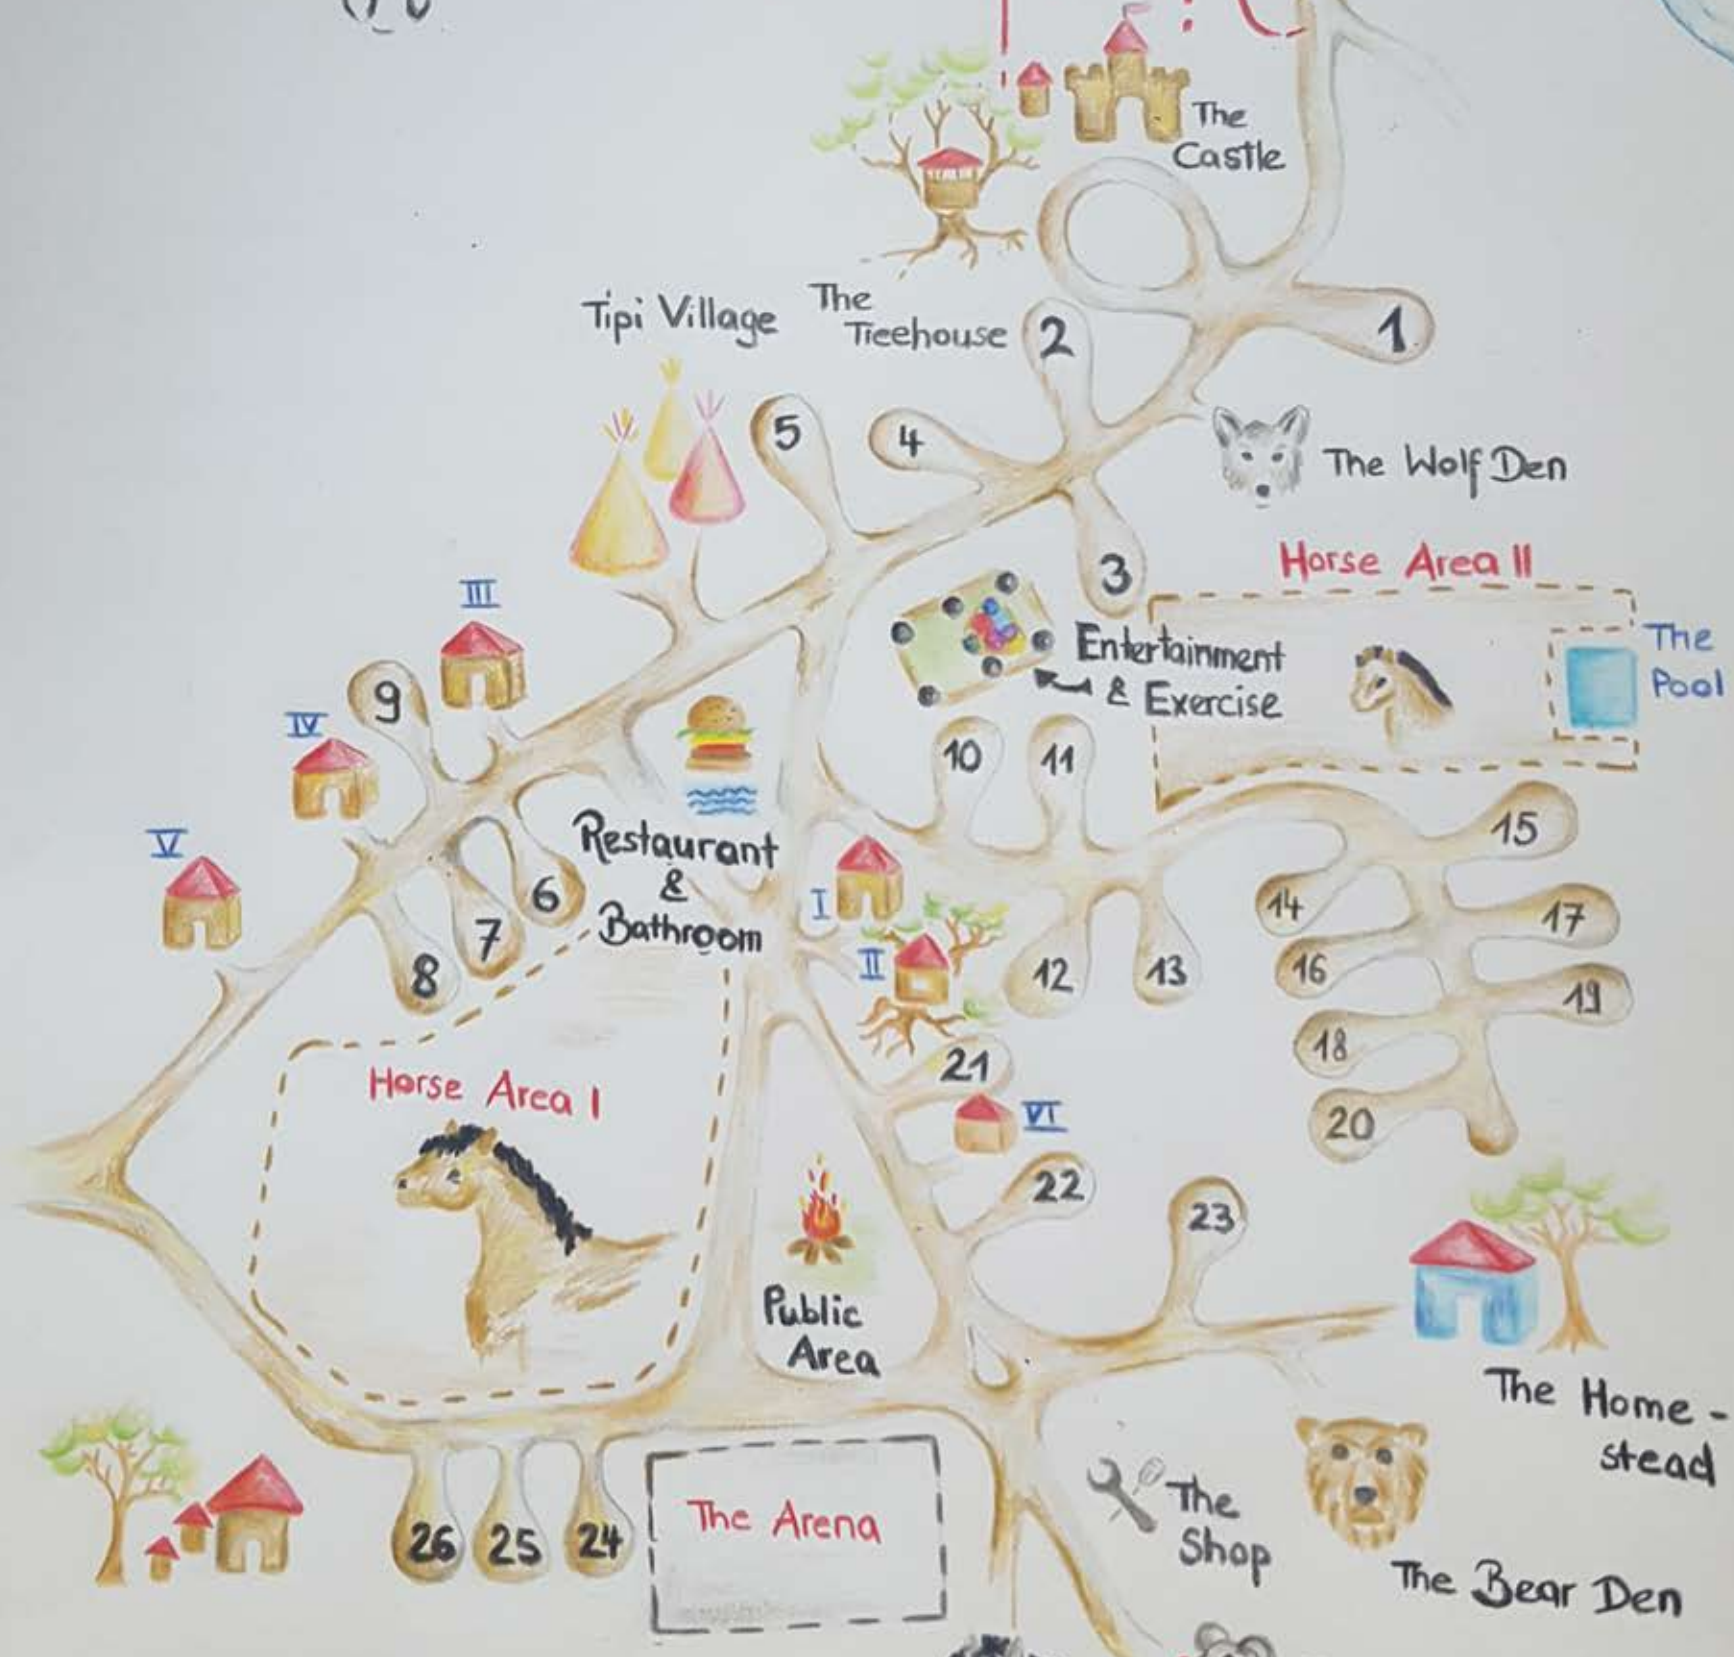 The
Castle
Tipi Village
The
Treehouse
1
2
5
4
The Wolf Den
3
Horse Area II
III
The
Pool
Entertainment
& Exercise
9
IV
10
11
15
V
Restaurant
&
Bathroom
6
7
8
I
II
14
17
12
13
16
19
18
21
Horse Area I
VI
20
22
23
Public
Area
The Home-
stead
The Arena
The
Shop
26
25
24
The Bear Den